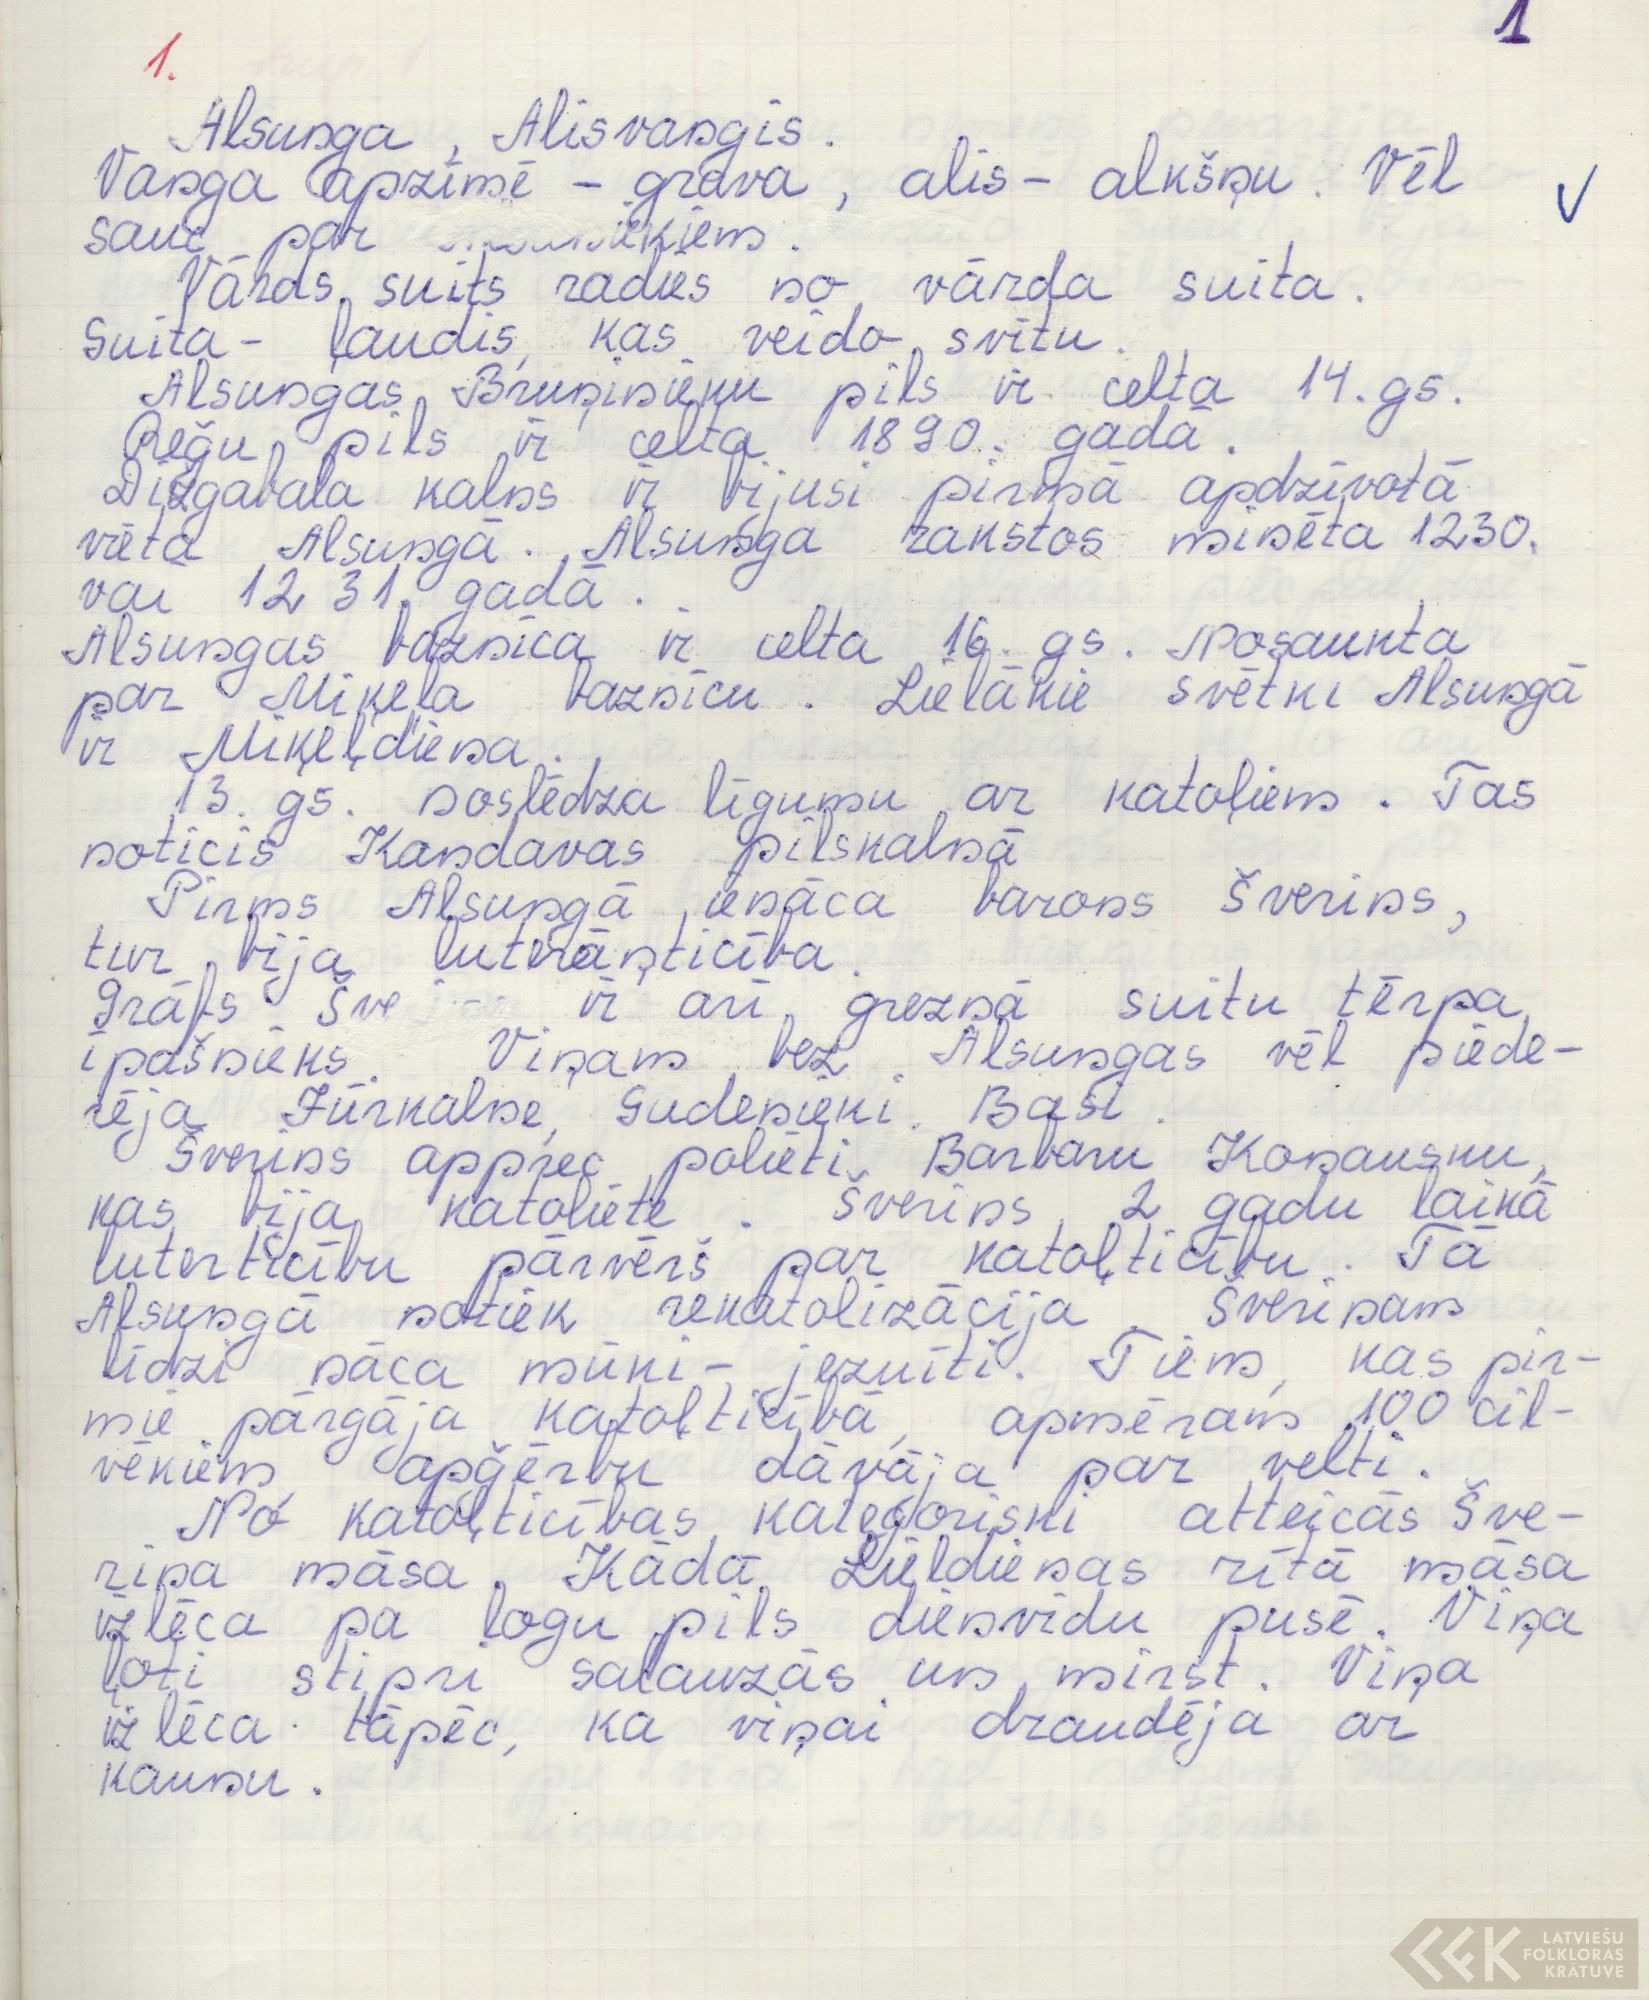 1
1.
Alsunga, Alisvangis.
Vanga apzīmē - grava, alis - alkšņu. Vēl
sauc par
Vārds suits radies no vārda suita.
Suita - ļaudis, kas veido svītu.
Alsungas Bruņinieku pils ir celta 14. gs.
Reģu pils ir celta 1890. gadā.
Dižgabala kalns ir bijusi pirmā apdzīvotā
vieta Alsungā. Alsunga rakstos minēta 1230.
vai 1231. gadā.
Alsungas baznīca ir celta 16. gs. Nosaukta
par Miķeļa baznīcu. Lielākie svētki Alsungā
ir Miķeļdiena.
13. gs. noslēdza līgumu ar katoļiem. Tas
noticis Kandavas pilskalnā
Pirms Alsungā ienāca barons Šverins,
tur bija luterāņticība.
Grāfs ir arī greznā suitu tērpa
īpašnieks. Viņam bez Alsungas vēl piede-
rēja Jūrkalne, Gudenieki, Basi.
Šverins apprec polieti Barbaru Koņausku,
kas bija katoliete. Šverins 2 gadu laikā
luterticību pārvērš par katoļticību. Tā
Alsungā notiek rekatolizācija. Šverinam
līdzi nāca mūki - jezuīti. Tiem, kas pir-
mie pārgāja katoļticībā, apmēram 100 cil-
vēkiem apģērbu dāvāja par velti.
No katoļticības kategoriski atteicās Šve-
riņa māsa. Kādā Lieldienas rītā māsa
izlēca pa logu pils dienvidu pusē. Viņa
ļoti stipri salauzās un mirst. Viņa
izlēca tāpēc, ka viņai draudēja ar
kaunu.
LATVIEŠU
FOLKLORAS
KRĀTUVE